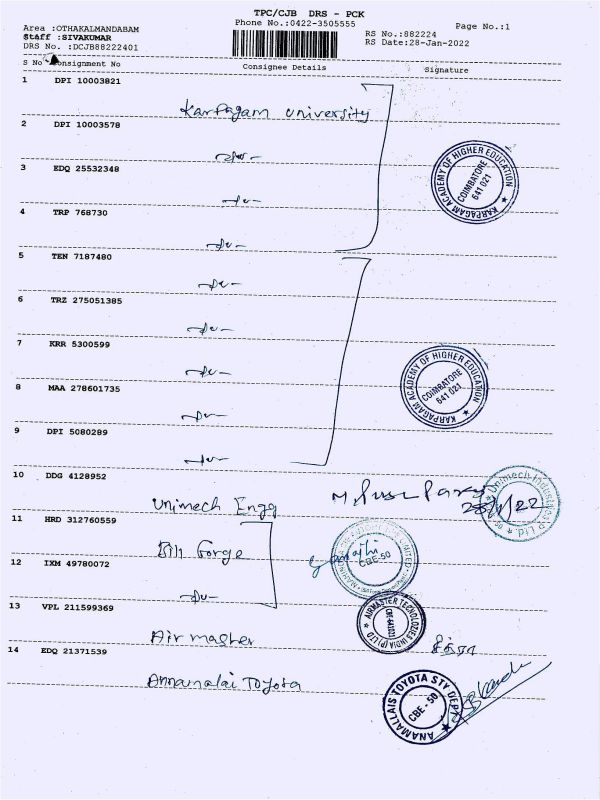 TPC/CJB DRS - PCK
Phone No.:0422-3505555
Page No.:1
Area :OTHAKALMANDABAM
Staff :SIVAKUMAR
DRS No. :DCJB88222401
RS No.:882224
RS Date:28-Jan-2022
S No Consignment No Consignee Details Signature
1 DPI 10003821
Karpagam University
2 DPI 10003578
-do-
3 EDQ 25532348
-do-
4 TRP 768730
-do-
KARPAGAM ACADEMY OF HIGHER EDUCATION
COIMBATORE
641 021
5 TEN 7187480
-do-
6 TRZ 275051385
-do-
7 KRR 5300599
-do-
8 MAA 278601735
-do-
9 DPI 5080289
-do-
KARPAGAM ACADEMY OF HIGHER EDUCATION
COIMBATORE
641 021
10 DDG 4128952
Unimech Engg
28/1/22
11 HRD 312760559
Bill Forge
CBE-50
12 IXM 49780072
-do-
13 VPL 211599369
Air master
AIRMASTER TECNOLOZIES INDIA (P) LTD
சித்ரா
14 EDQ 21371539
Annamalai Toyota
ANAMALLAIS TOYOTA STY DEPT
CBE - 50